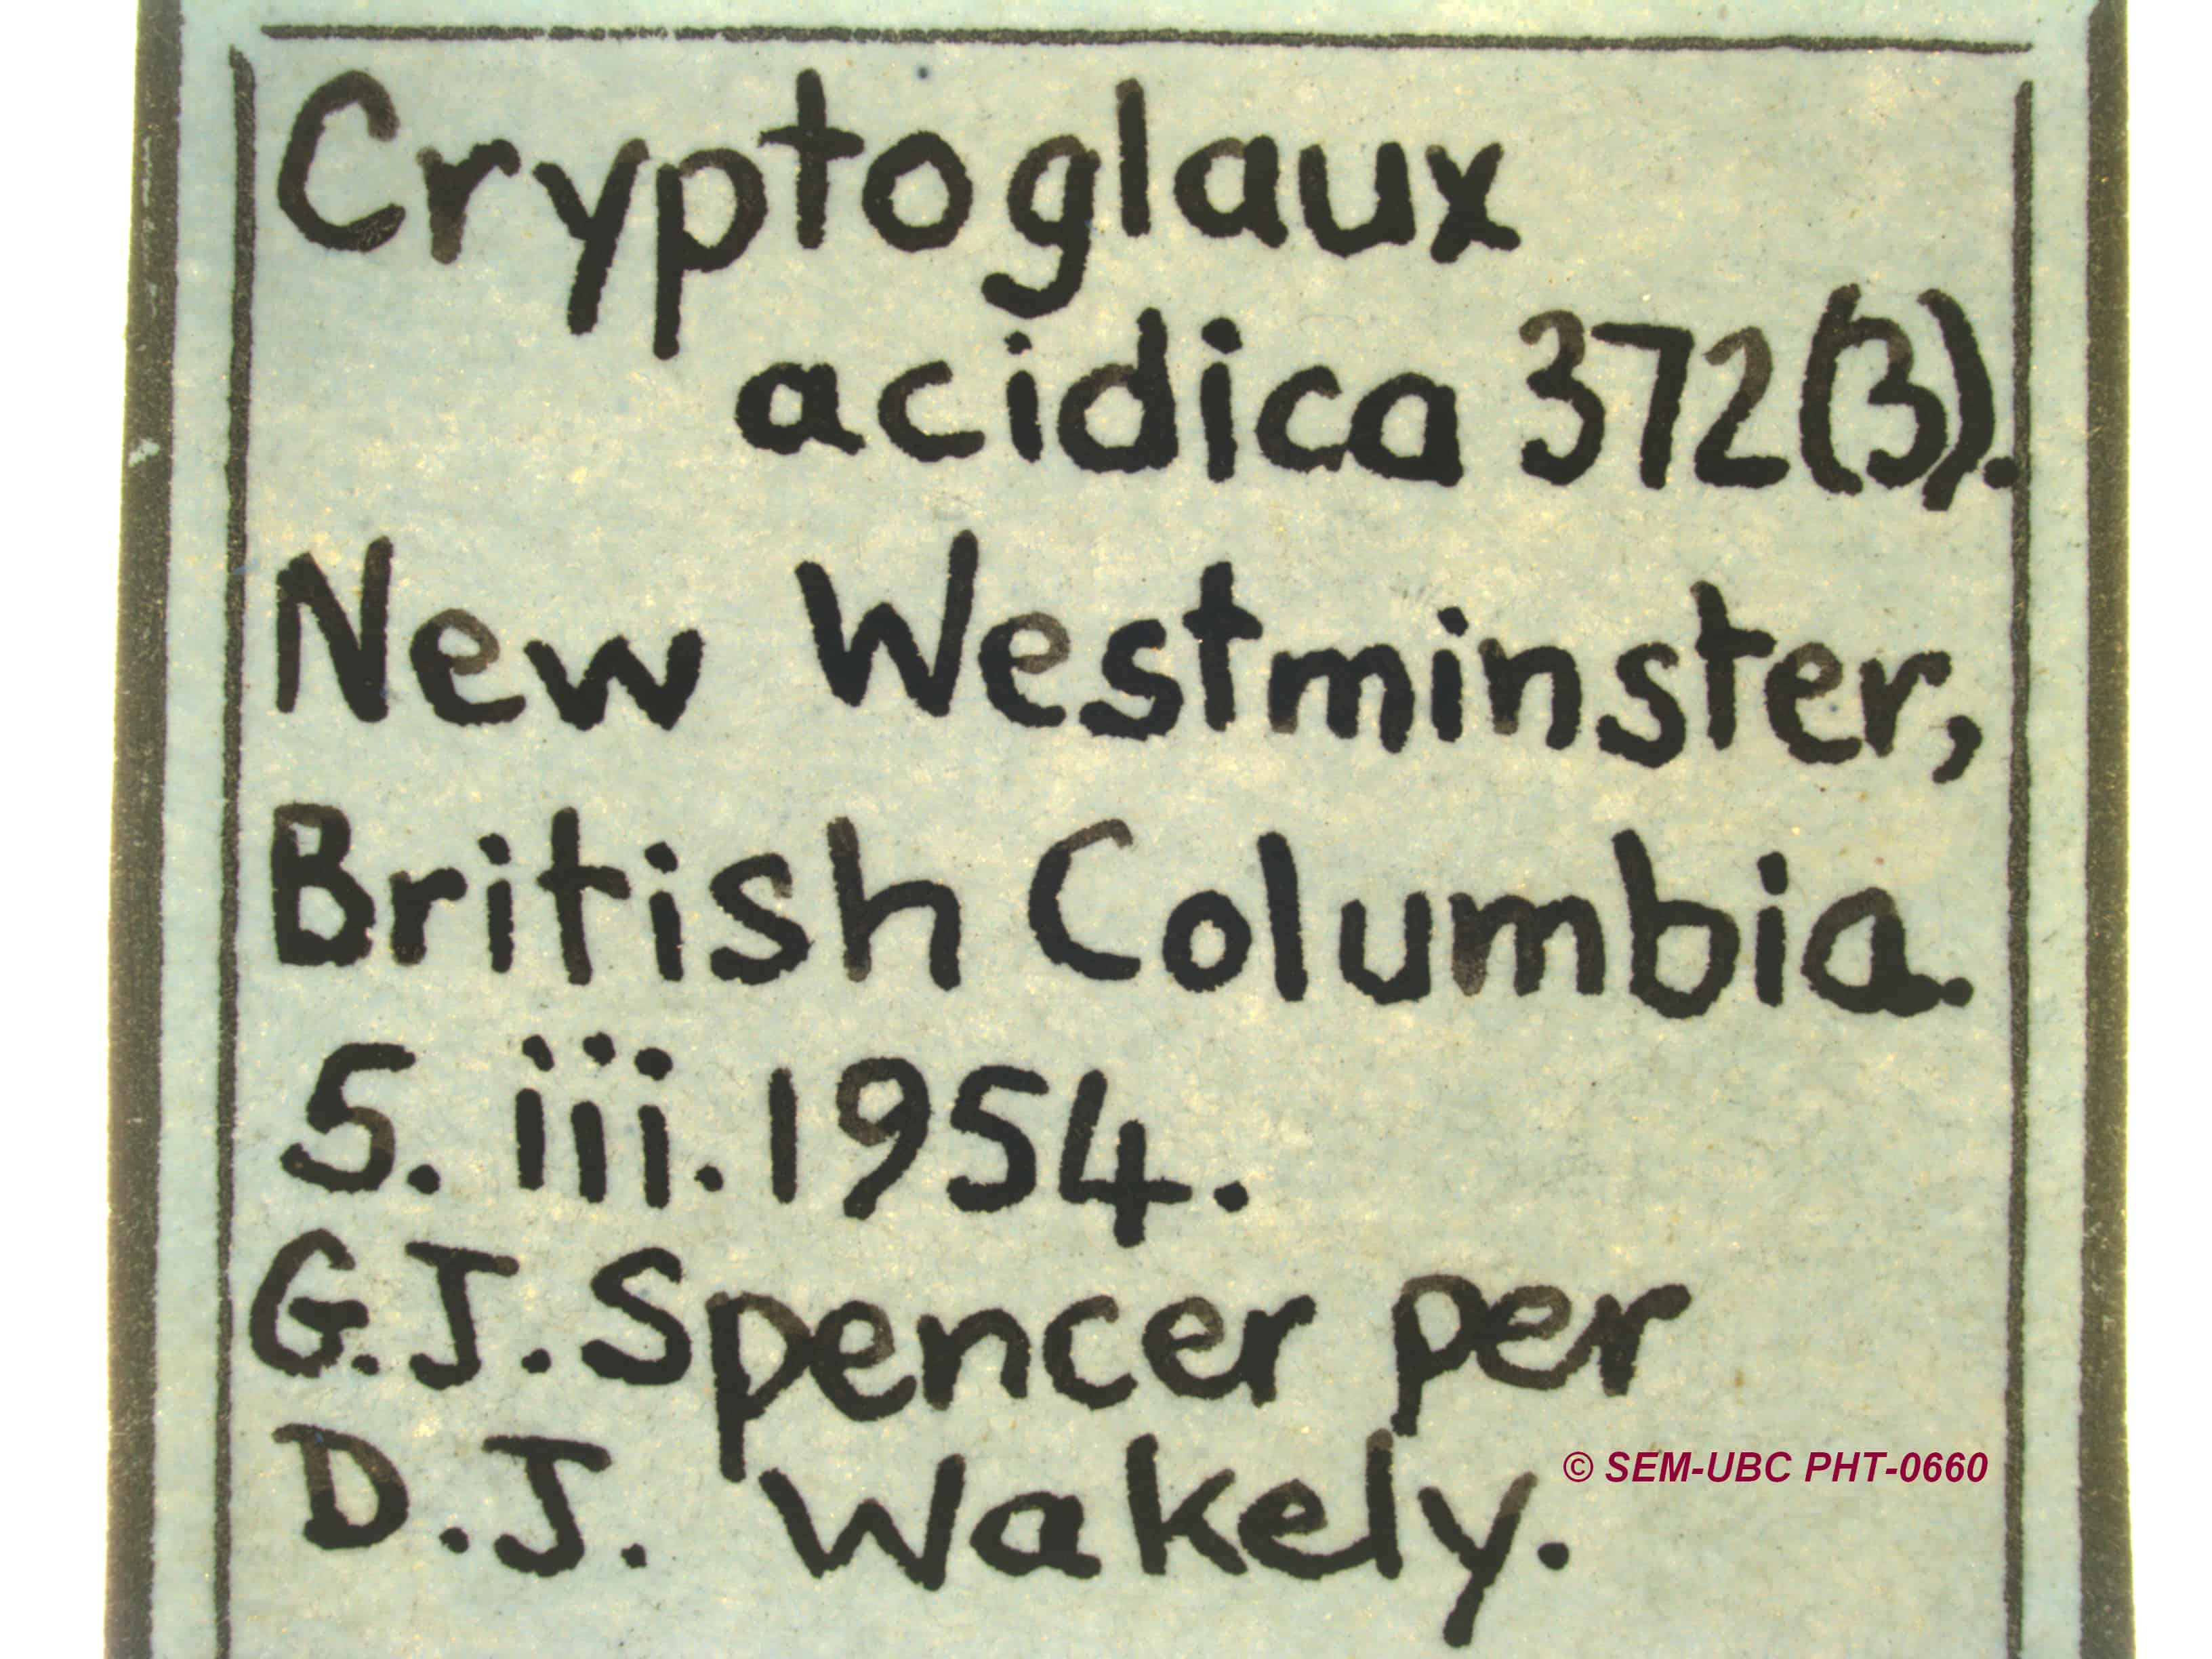 Cryptoglaux
acidica 372(3).
New Westminster,
British Columbia.
5. iii. 1954.
G.J. Spencer per
D.J. Wakely.
© SEM-UBC PHT-0660